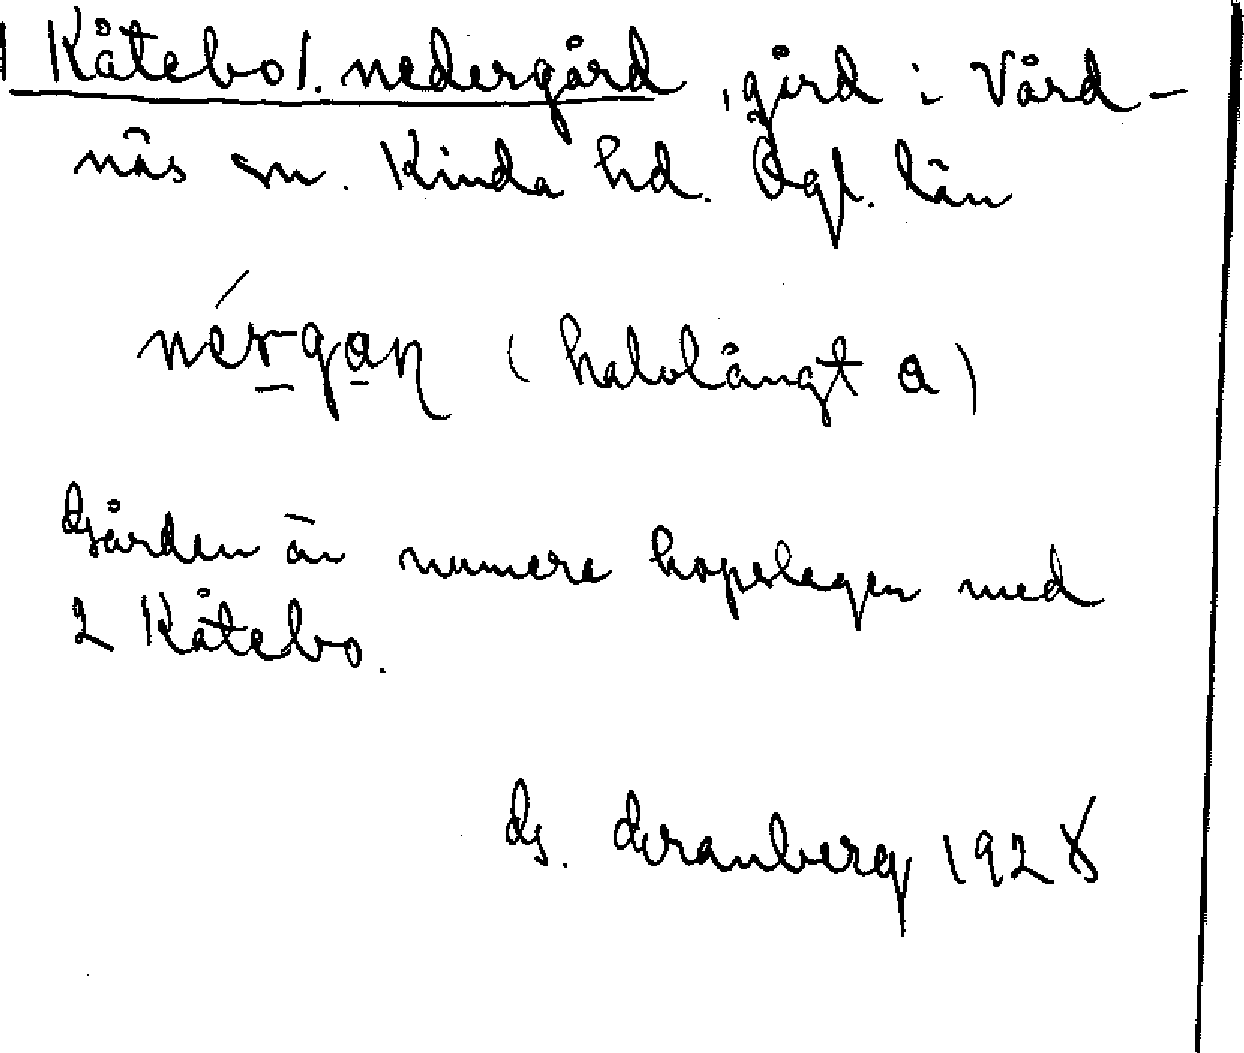 1 Kåtebo 1. nedergård, gård i Vård-
näs sn. Kinda hd. Ögl. län
nérgaɳ (halvlångt a)
Gården är numera hopslagen med
2 Kåtebo.
G. Granberg 1928